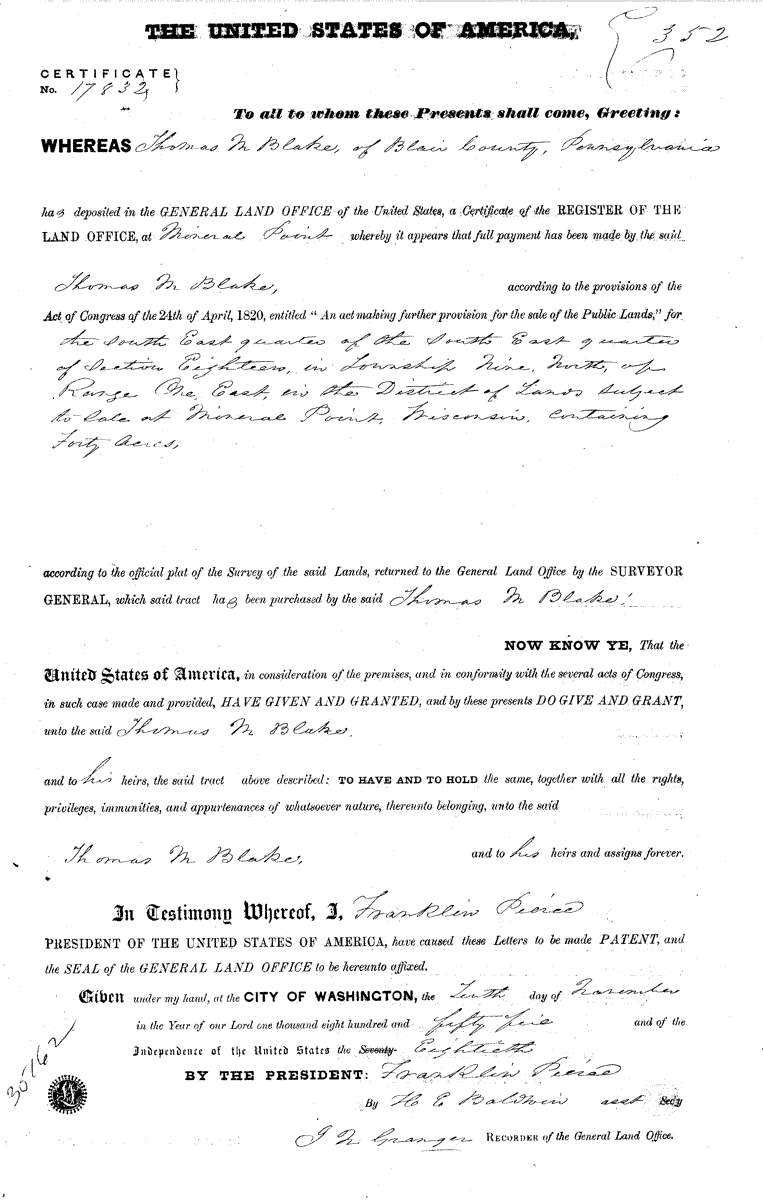 THE UNITED STATES OF AMERICA,
352
CERTIFICATE }
No. 17832 }
To all to whom these Presents shall come, Greeting:
WHEREAS Thomas M Blake, of Blair County, Pennsylvania
has deposited in the GENERAL LAND OFFICE of the United States, a Certificate of the REGISTER OF THE
LAND OFFICE, at Mineral Point whereby it appears that full payment has been made by the said
Thomas M Blake, according to the provisions of the
Act of Congress of the 24th of April, 1820, entitled “An act making further provision for the sale of the Public Lands,” for
the South East quarter of the South East quarter
of Section Eighteen, in Township Nine, North, of
Range One East, in the District of Lands subject
to Sale at Mineral Point, Wisconsin, containing
Forty Acres,
according to the official plat of the Survey of the said Lands, returned to the General Land Office by the SURVEYOR
GENERAL, which said tract has been purchased by the said Thomas M Blake.
NOW KNOW YE, That the
United States of America, in consideration of the premises, and in conformity with the several acts of Congress,
in such case made and provided, HAVE GIVEN AND GRANTED, and by these presents DO GIVE AND GRANT,
unto the said Thomas M Blake,
and to his heirs, the said tract above described: TO HAVE AND TO HOLD the same, together with all the rights,
privileges, immunities, and appurtenances of whatsoever nature, thereunto belonging, unto the said
Thomas M Blake, and to his heirs and assigns forever.
In Testimony Whereof, I, Franklin Pierce
PRESIDENT OF THE UNITED STATES OF AMERICA, have caused these Letters to be made PATENT, and
the SEAL of the GENERAL LAND OFFICE to be hereunto affixed.
Given under my hand, at the CITY OF WASHINGTON, the Tenth day of November
in the Year of our Lord one thousand eight hundred and fifty five and of the
Independence of the United States the Seventy- Eightieth
BY THE PRESIDENT: Franklin Pierce
By H E Baldwin asst Sec'y
J N Granger RECORDER of the General Land Office.
30762